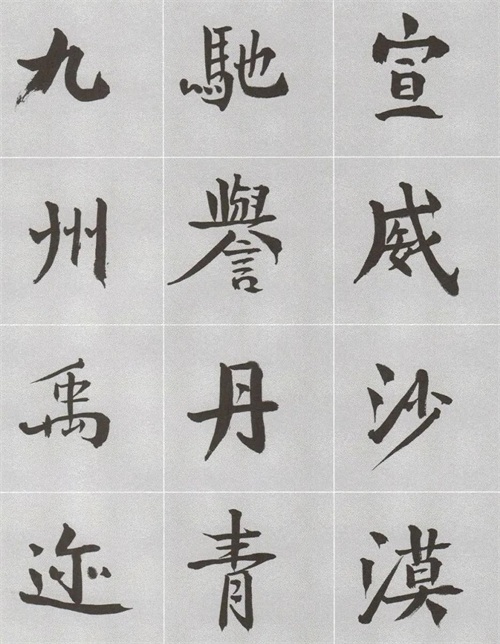 宣威沙漠
馳譽丹青
九州禹迹